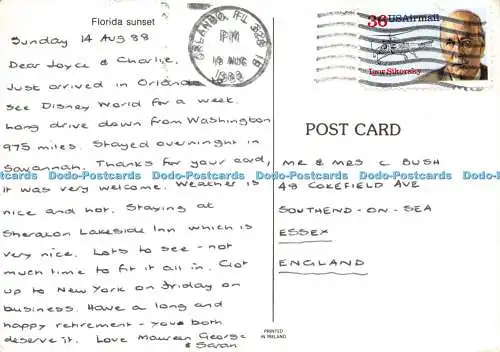 Florida sunset
Sunday 14 Aug 88
Dear Joyce & Charlie,
Just arrived in Orlando to
see Disney World for a week.
Long drive down from Washington
975 miles. Stayed overninght in
Savannah. Thanks for your card,
it was very welcome. Weather is
nice and hot. Staying at
Sheraton Lakeside Inn which is
very nice. Lots to see - not
much time to fit it all in. Got
up to New York on Friday on
business. Have a long and
happy retirement - you both
deserve it. Love Maureen George
& Susan
ORLANDO, FL 328
PM
1988
36 USAirmail
Igor Sikorsky
POST CARD
MR & MRS C BUSH
48 COKEFIELD AVE
SOUTHEND-ON-SEA
ESSEX
ENGLAND
PRINTED
IN IRELAND
Dodo-Postcards Dodo-Postcards Dodo-Postcards